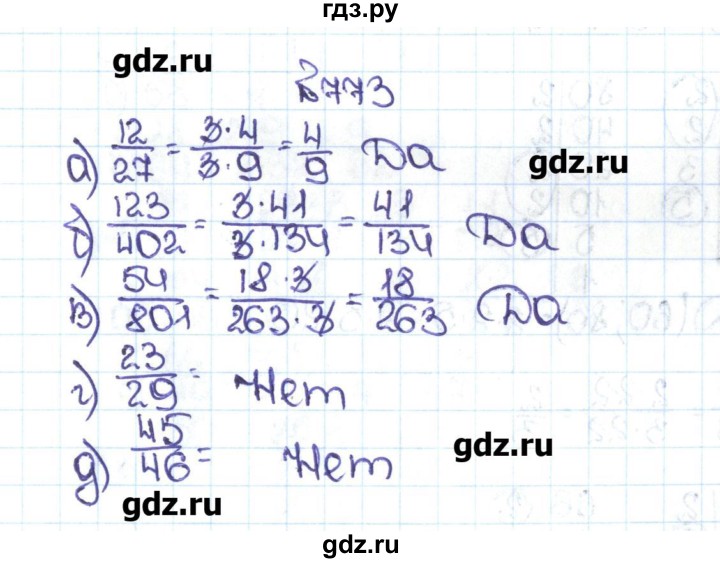 гдз.ру
gdz.ru
№773
а) 12/27 = 3·4/3·9 = 4/9 Да
б) 123/402 = 3·41/3·134 = 41/134 Да
в) 54/801 = 18·3/263·3 = 18/263 Да
г) 23/29 = Нет
д) 45/46 = Нет
gdz.ru
gdz.ru
gdz.ru